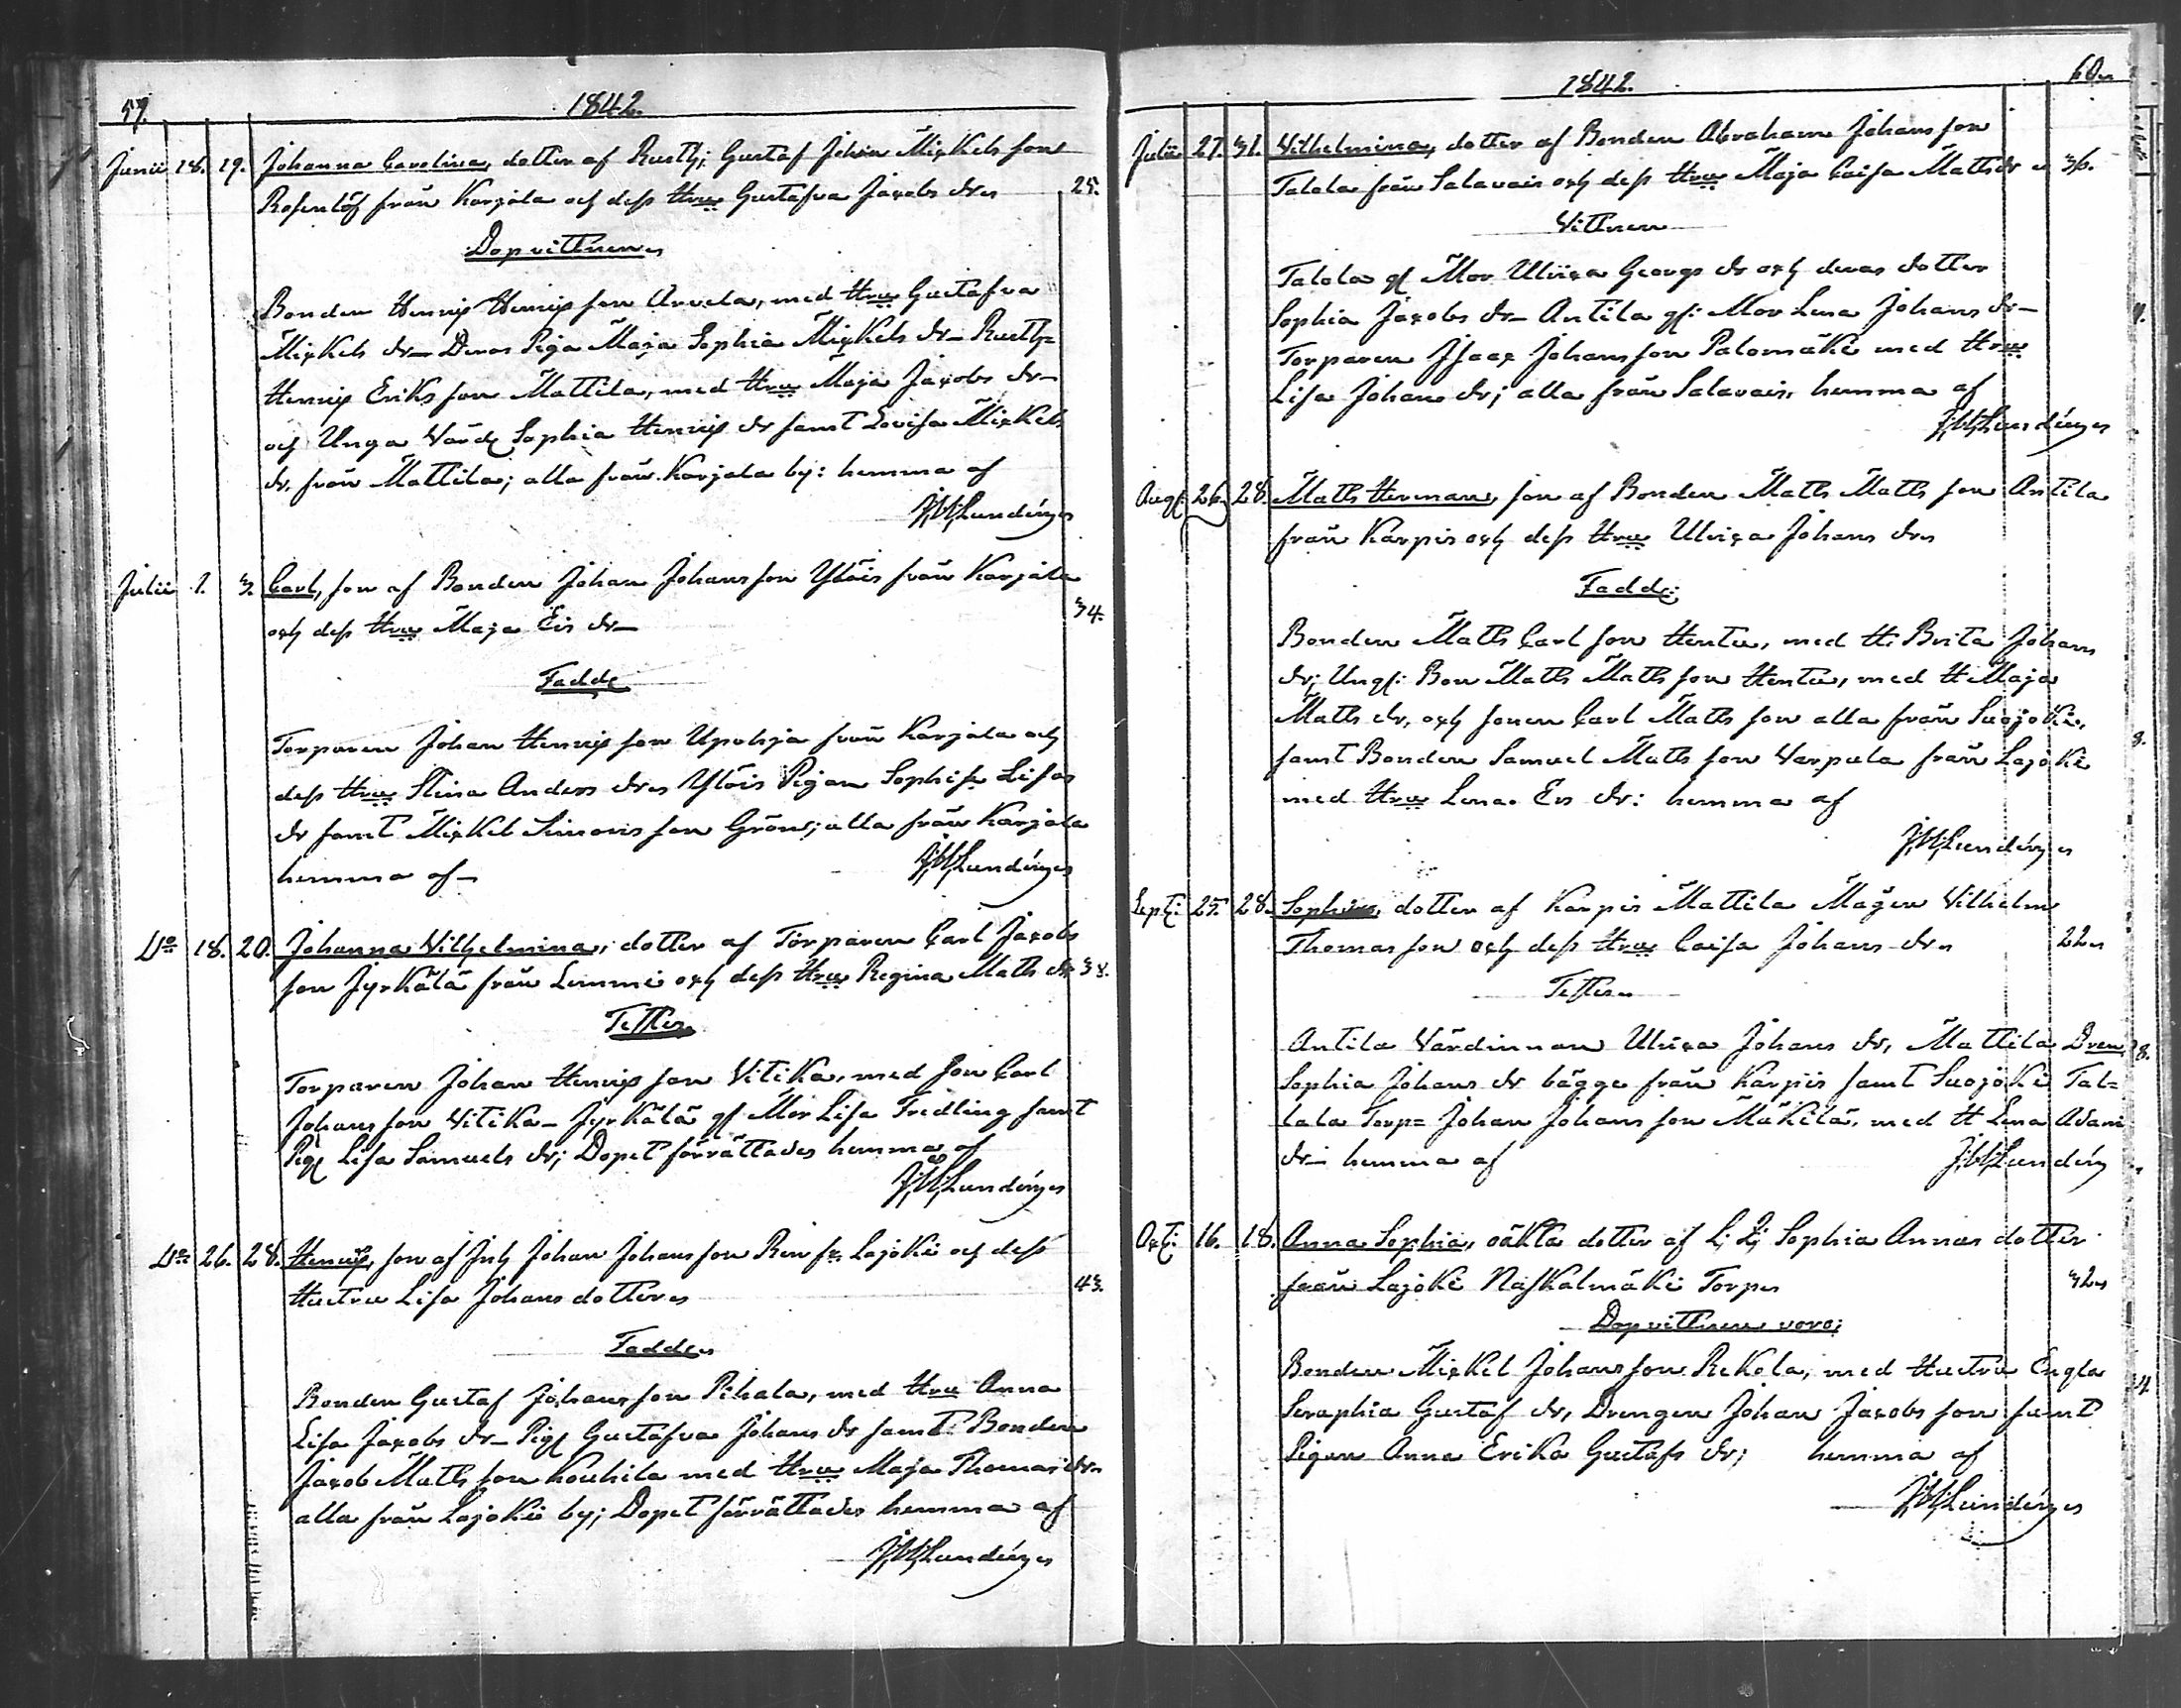 59.
1842.
Junii 18. 19. Johanna Carolina, dotter af Rusth; Gustaf Johan Mickelsson
Rosenlöf från Karjala och dess Hru Gustafva Jacobs dr 25.
Dopvittnen
Bonden Henric Henricsson Arvela, med Hru Gustafva
Mickels dr— Deras Piga Maja Sophia Mickels dr— Rusth=
Henric Eriksson Mattila, med Hru Maja Jacobs dr—
och Unga Värd: Sophia Henrics dr samt Lovisa Mickels
dr. från Mattila; alla från Karjala by: hemma af
JW Lundén
Julii 1. 3. Carl, son af Bonden Johan Johansson Yläis från Karjala
och dess Hru Maja Ers dr— 34.
Fadd:
Torparen Johan Henricsson Upohja från Karjala och
dess Hru Stina Anders dr Yläis Pigan Sophia Lisas
dr samt Mickel Simonsson Grön; alla från Karjala
hemma af— JW Lundén
Do 18. 20. Johanna Wilhelmina, dotter af Torparen Carl Jacobs
son Jyrkälä från Lemmi och dess Hru Regina Maths dr 38.
Testes
Torparen Johan Henricsson Vitika, med son Carl
Johansson Vitika— Jyrkälä gl Mor Lisa Fredling samt
Pig: Lisa Samuels dr; Dopet förrättades hemma af
JW Lundén
Do 26. 28. Henric, son af Inh Johan Johansson Ren fr. Lajoki och dess
Hustru Lisa Johans dotter 43.
Fadder
Bonden Gustaf Johansson Pihala, med Hru Anna
Lisa Jacobs dr— Pig: Gustafva Johans dr samt Bonden
Jacob Mathsson Kouhila med Hru Maja Thomas dr
alla från Lajoki by; Dopet förrättades hemma af
JW Lundén
1842.
60.
Julii 27. 31. Wilhelmina, dotter af Bonden Abraham Johansson
Talola från Salavais och dess Hru Maja Caisa Maths dr 36.
Vittnen
Talola gl Mor Ulrica Georgs dr och deras dotter
Sophia Jacobs dr— Antila gl: Mor Lena Johans dr—
Torparen Isaac Johansson Palomäki med Hru
Lisa Johans dr; alla från Salavais, hemma af
JW Lundén
Aug: 26. 28. Maths Herman, son af Bonden Maths Mathsson Antila
från Karpis och dess Hru Ulrica Johans dr
Fadd:
Bonden Maths Carlsson Hentu, med H. Brita Johans
dr; Ung: Bon Maths Mathsson Hentu, med H Maja
Maths dr, och sonen Carl Mathsson alla från Suojoki,
samt Bonden Samuel Mathsson Warpula från Lajoki
med Hru Lena Ers dr: hemma af
JW Lundén
Sept: 25. 28. Sophia, dotter af Karpis Mattila Mågen Vilhelm
Thomasson och dess Hru Caisa Johans dr 22
Testes
Antila Värdinnan Ulrica Johans dr, Mattila Dren
Sophia Johans dr bägge från Karpis samt Suojoki Tal=
lala Torp= Johan Johansson Mäkilä, med H Lena Adams
dr— hemma af JW Lundén
Oct: 16. 18. Anna Sophia, oäkta dotter af L: Q; Sophia Annas dotter
från Lajoki Naskalmäki Torp 32
Dopvittnen voro;
Bonden Mickel Johansson Rekola, med Hustru Engla
Seraphia Gustaf dr, Drengen Johan Jacobsson samt
Pigan Anna Erika Gustafs dr; hemma af
JW Lundén